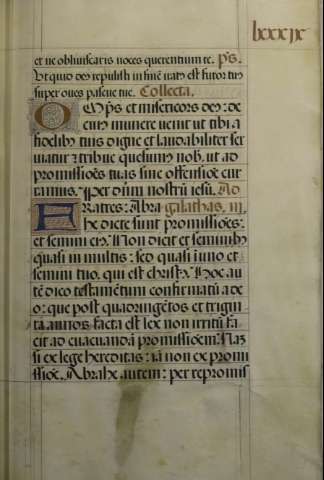 lxxxix
et ne obliuiscaris uoces querentium te. ps.
Vt quid deus repulisti in finem iratus est furor tuus
super oues pascue tue. Collecta.
Omps et misericors deus: de
cuius munere uenit ut tibi a
fidelibus tuis digne et laudabiliter ser
uiatur: tribue quesumus nob. ut ad
promissiões tuas sine offensiõe cur
ramus. Per dñm nostrũ iesũ. Ad
Fratres: Abra galathas. iii.
he dicte sunt promissiões:
et semini eius. Non dicit et seminibus
quasi in multis: sed quasi in uno et
semini tuo. qui est christus. Hoc au
tẽ dico testamẽtum confirmatũ a de
o: que post quadringẽtos et trigin
ta annos facta est lex non irritũ fa
cit ad euacuandã promissiõem: Naz
si ex lege hereditas: iã non ex promi
ssiõe. Abrahe autem: per repromis